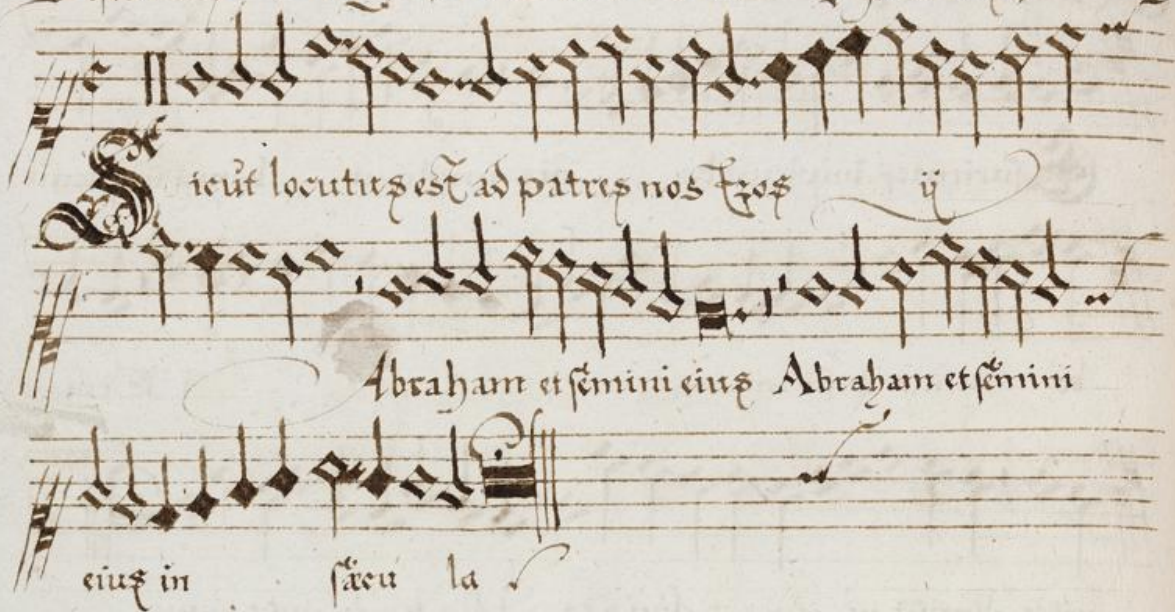 Sicut locutus est ad patres nostros ij
Abraham et semini eius Abraham et semini
eius in sæcu la